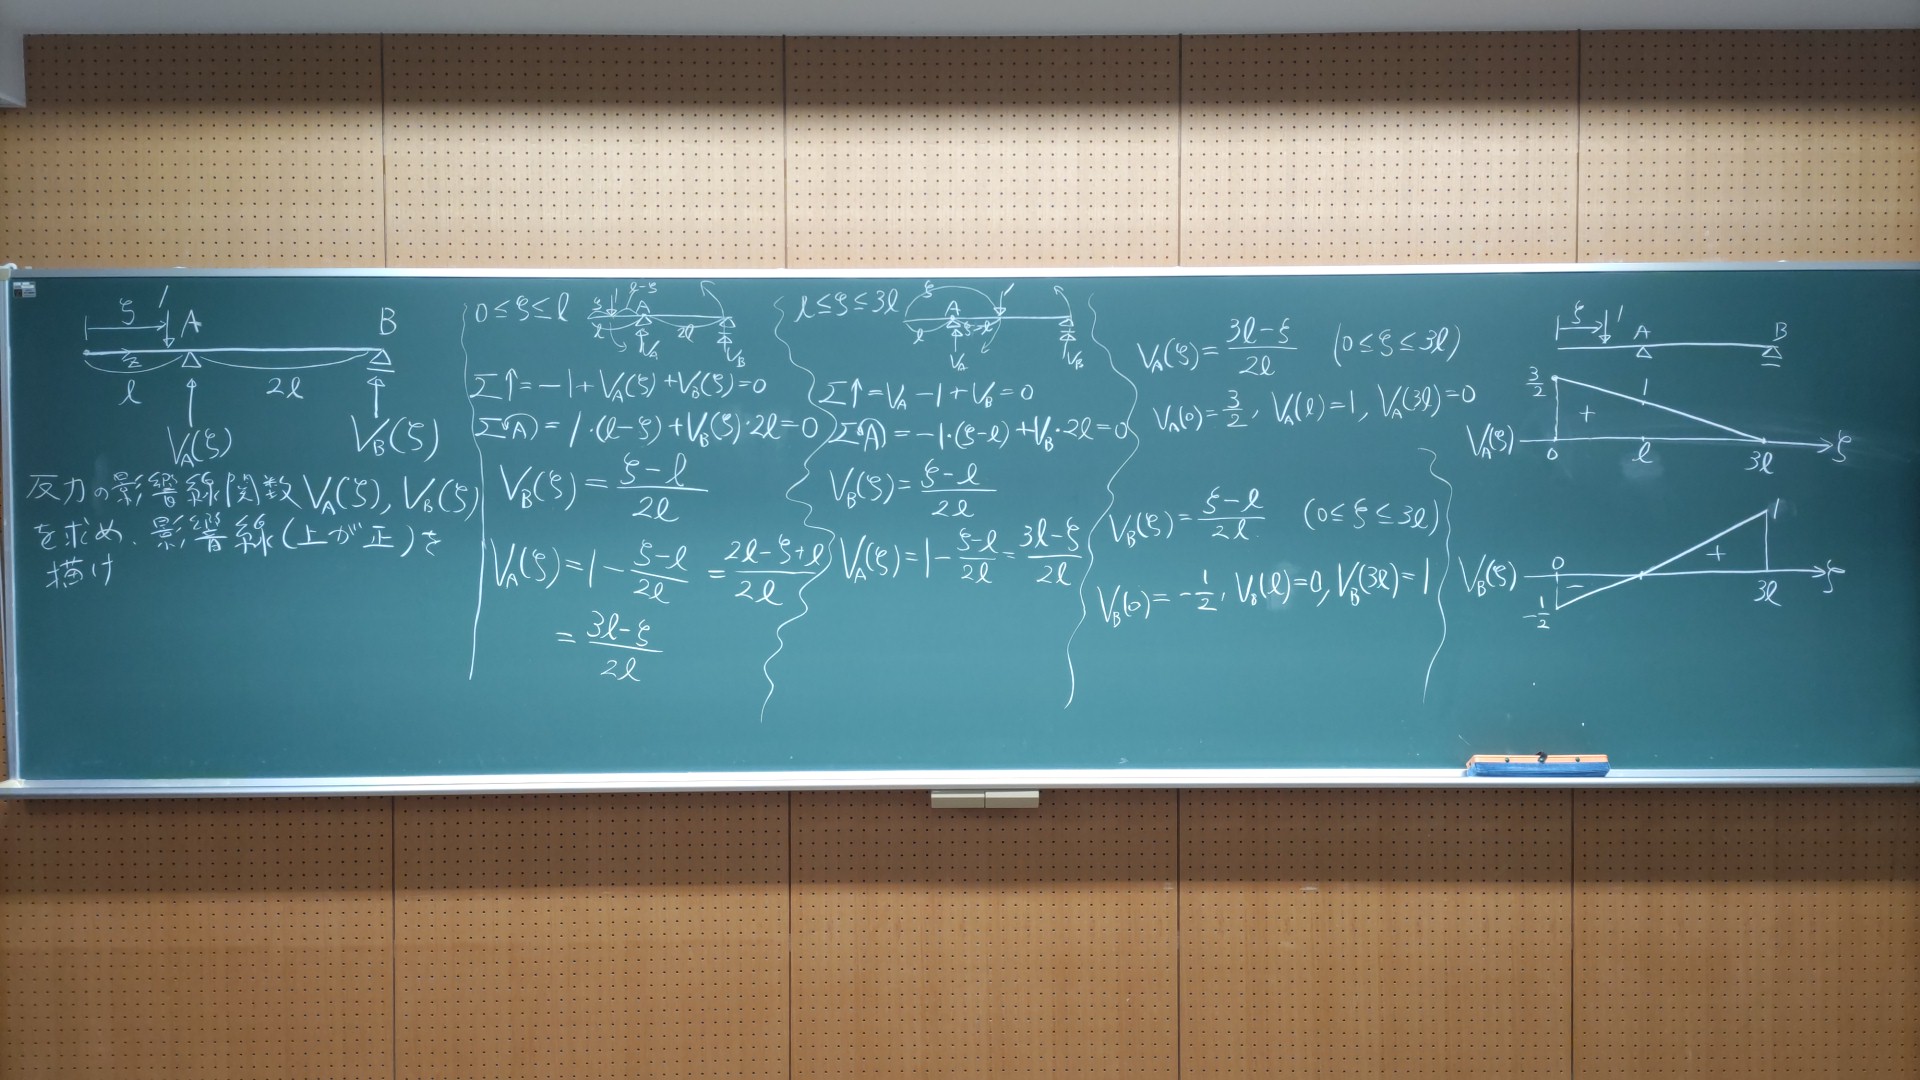 ζ 1 A B
z
l 2l
V_A(ζ) V_B(ζ)
反力の影響線関数V_A(ζ), V_B(ζ)
を求め、影響線(上が正)を
描け
0≤ζ≤l
ζ 1 l-ζ A
l 2l
V_A V_B
Σ↑=-1+V_A(ζ)+V_B(ζ)=0
Σ↶A)=1·(l-ζ)+V_B(ζ)·2l=0
V_B(ζ)=\frac{ζ-l}{2l}
V_A(ζ)=1-\frac{ζ-l}{2l}=\frac{2l-ζ+l}{2l}
=\frac{3l-ζ}{2l}
l≤ζ≤3l
ζ A 1
l ζ-l
V_A V_B
Σ↑=V_A-1+V_B=0
Σ↶A)=-1·(ζ-l)+V_B·2l=0
V_B(ζ)=\frac{ζ-l}{2l}
V_A(ζ)=1-\frac{ζ-l}{2l}=\frac{3l-ζ}{2l}
V_A(ζ)=\frac{3l-ζ}{2l} (0≤ζ≤3l)
V_A(0)=\frac{3}{2}, V_A(l)=1, V_A(3l)=0
V_B(ζ)=\frac{ζ-l}{2l} (0≤ζ≤3l)
V_B(0)=-\frac{1}{2}, V_B(l)=0, V_B(3l)=1
ζ 1 A B
\frac{3}{2} 1
+
V_A(ζ) 0 l 3l ζ
1
+
V_B(ζ) 0 - 3l ζ
-\frac{1}{2}